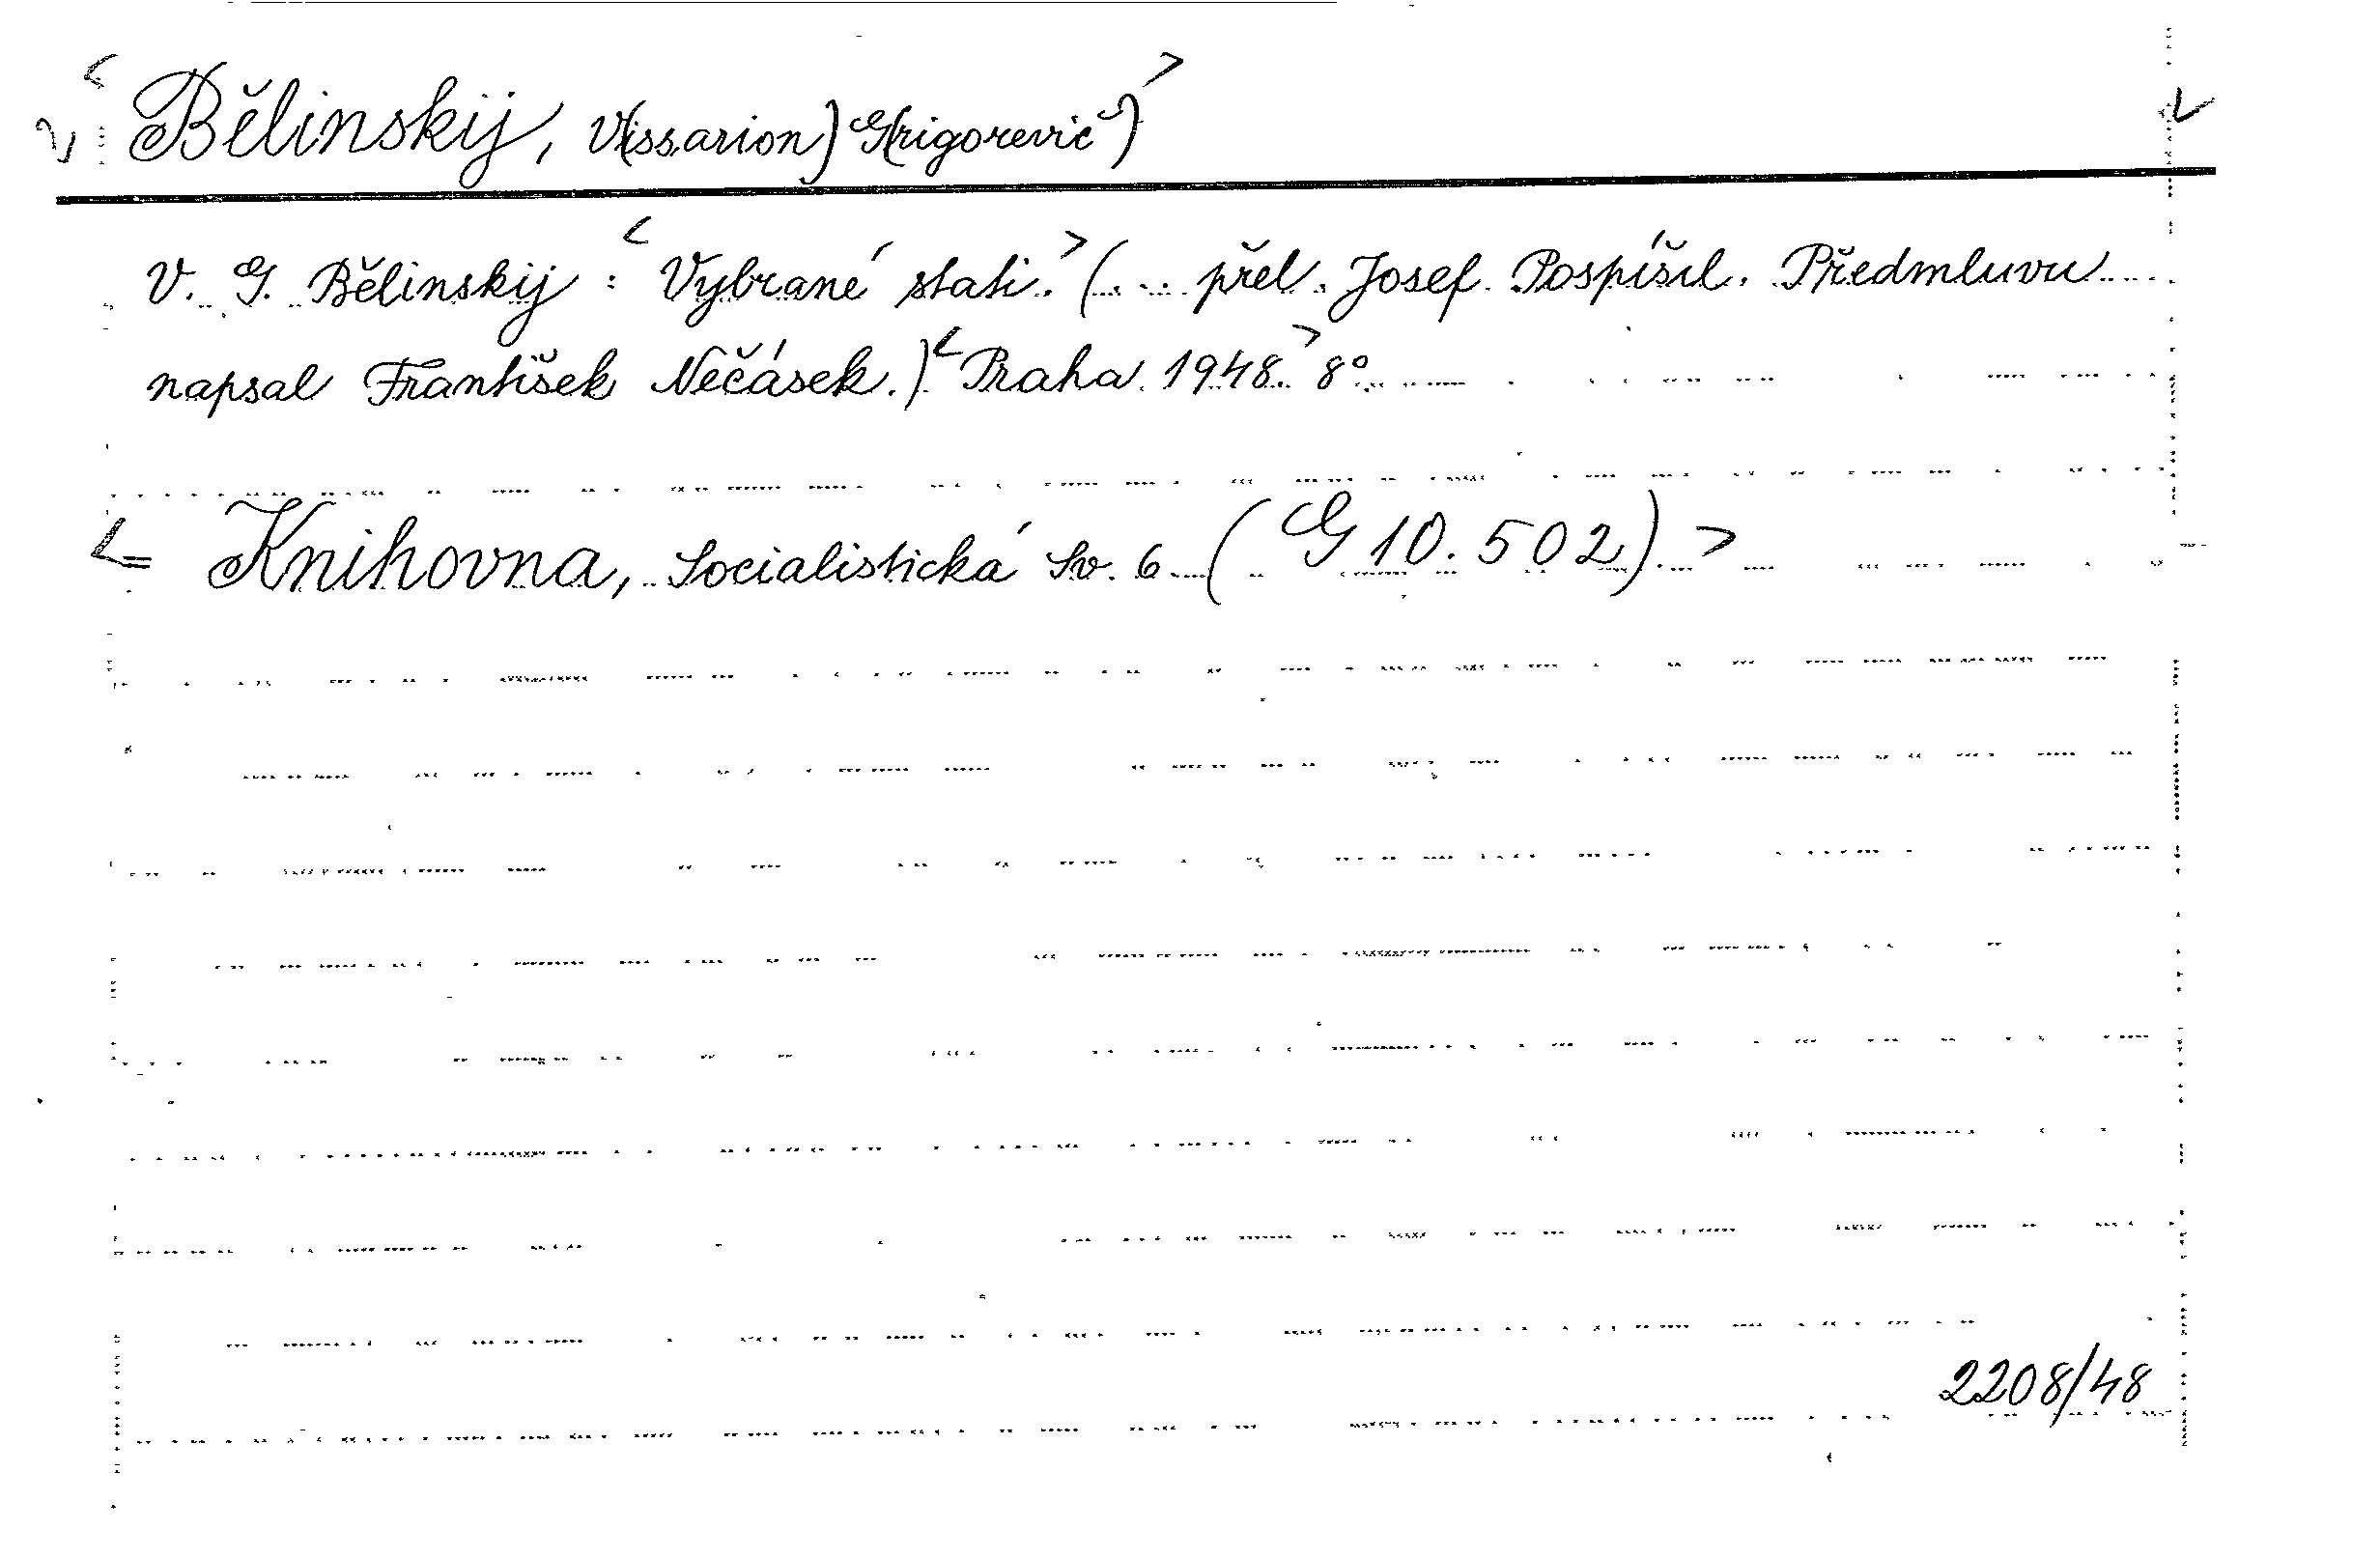 < Bělinskij, V(issarion) G(rigorevič) >
V. G. Bělinskij : < Vybrané stati. > (... přel. Josef Pospíšil. Předmluvu
napsal František Nečásek.) < Praha 1948. > 8°.
<= Knihovna, Socialistická Sv. 6 (G 10.502). >
2208/48